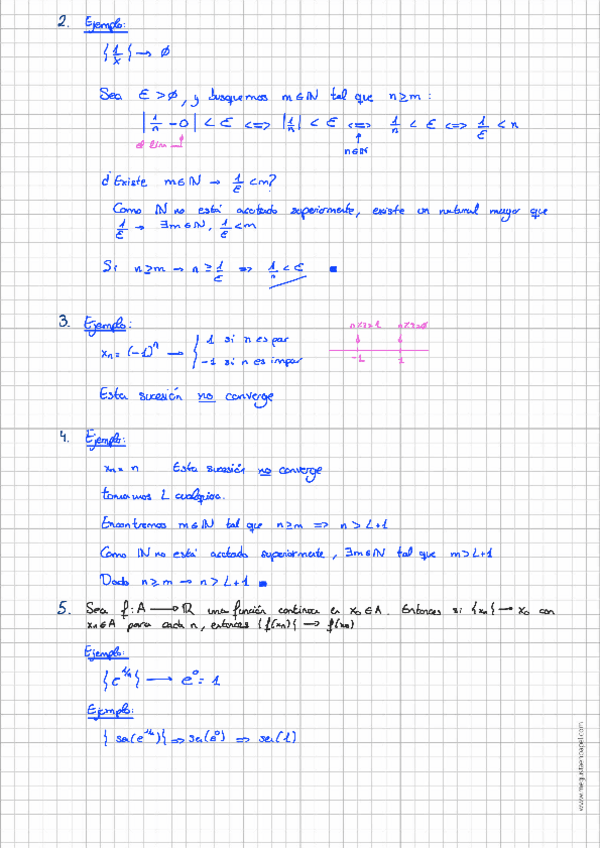 2. Ejemplo:
{1/x} → ø
Sea ε > ø, y busquemos m ∈ ℕ tal que n ≥ m:
|1/n - 0| < ε <=> |1/n| < ε <=> 1/n < ε <=> 1/ε < n
n ∈ ℕ
¿Existe m ∈ ℕ → 1/ε < m?
Como ℕ no está acotado superiormente, existe un natural mayor que
1/ε → ∃m ∈ ℕ, 1/ε < m
Si n ≥ m → n ≥ 1/ε => 1/n < ε ■
3. Ejemplo:
xn = (-1)^n → { 1 si n es par
-1 si n es impar
-1 1
Esta sucesión no converge
4. Ejemplo:
xn = n Esta sucesión no converge
tomamos L cualquiera.
Encontremos m ∈ ℕ tal que n ≥ m => n > L+1
Como ℕ no está acotado superiormente, ∃m ∈ ℕ tal que m > L+1
Dado n ≥ m → n > L+1 ■
5. Sea f: A → ℝ una función continua en x0 ∈ A. Entonces si {xn} → x0 con
xn ∈ A para cada n, entonces {f(xn)} → f(x0)
Ejemplo:
{e^1/n} → e^0 = 1
Ejemplo:
{sen(e^1/n)} => sen(e^0) => sen(1)
www.megustaenpapel.com